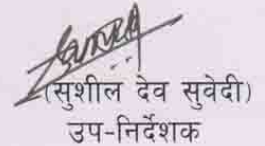 (सुशील देव सुवेदी)
उप-निर्देशक